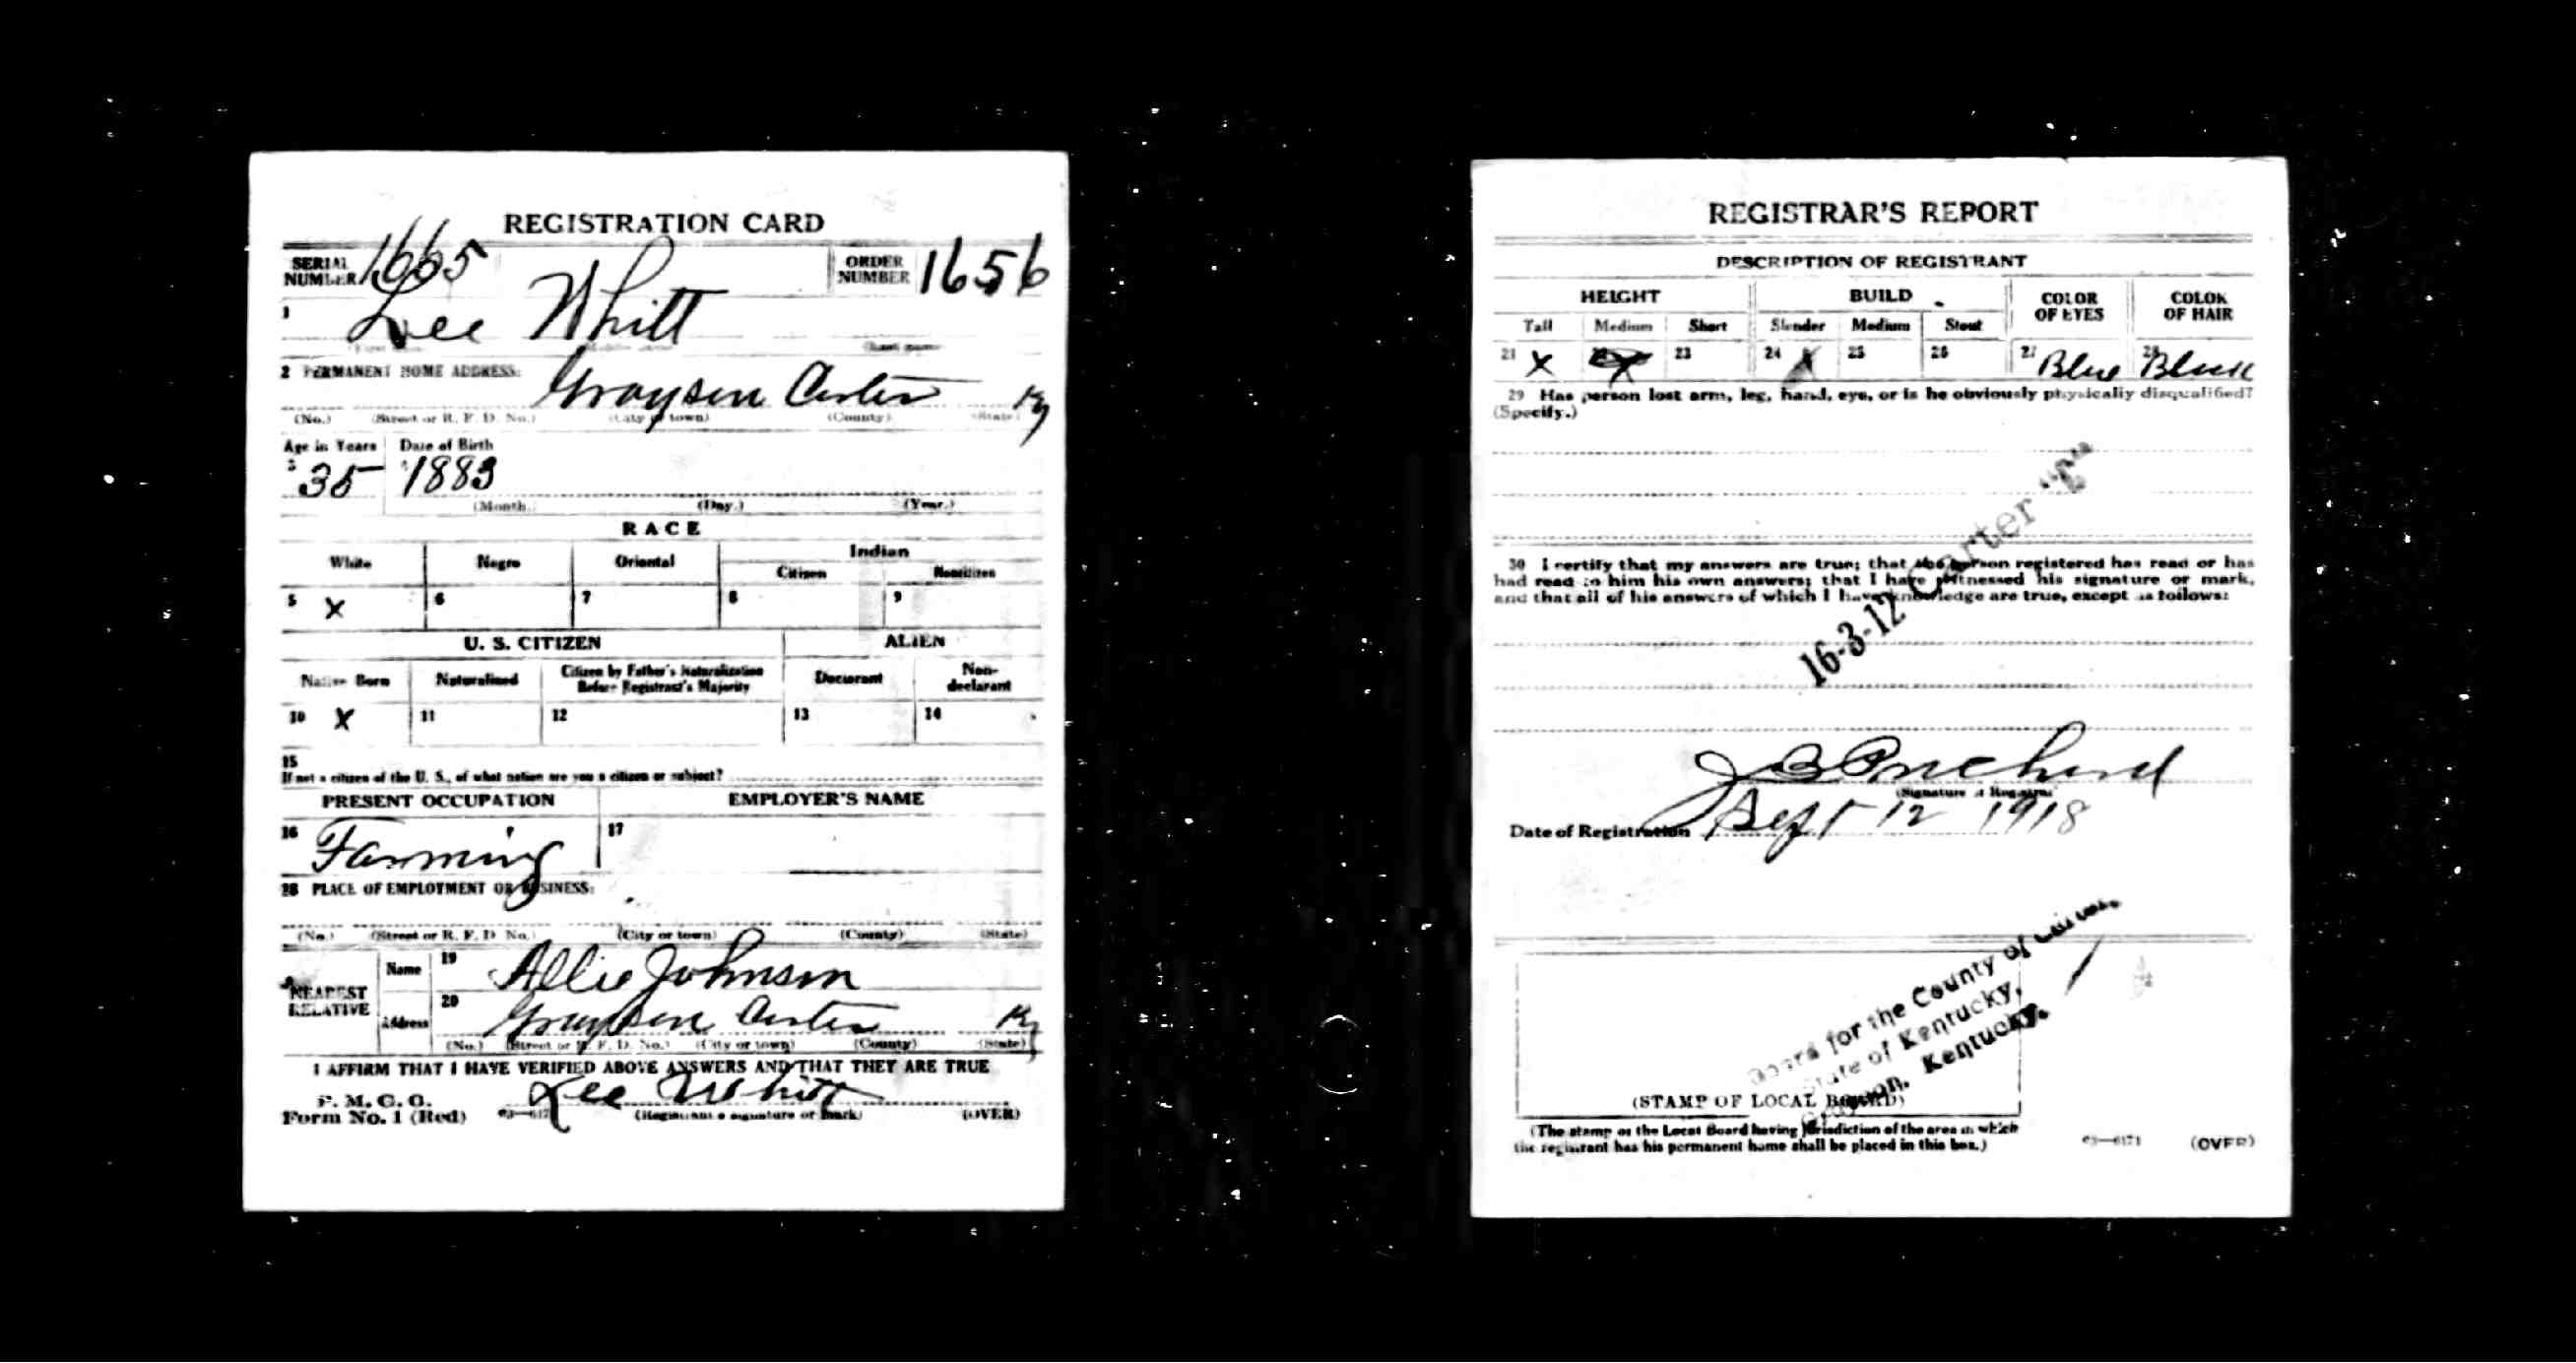 REGISTRATION CARD
SERIAL NUMBER 1665
ORDER NUMBER 1656
1 Lee Whitt
2 PERMANENT HOME ADDRESS: Grayson Carter Ky
(No.) (Street or R. F. D. No.) (City or town) (County) (State)
Age in Years Date of Birth
3 35 1883
(Month.) (Day.) (Year.)
RACE
White Negro Oriental Indian
Citizen Noncitizen
5 X 6 7 8 9
U. S. CITIZEN ALIEN
Native Born Naturalized Citizen by Father's Naturalization Before Registrant's Majority Declarant Non-declarant
10 X 11 12 13 14
15
If not a citizen of the U. S., of what nation are you a citizen or subject?
PRESENT OCCUPATION EMPLOYER'S NAME
16 Farming 17
PLACE OF EMPLOYMENT OR BUSINESS:
(No.) (Street or R. F. D. No.) (City or town) (County) (State)
NEAREST RELATIVE
Name 19 Allie Johnson
Address 20 Grayson Carter Ky
(No.) (Street or R. F. D. No.) (City or town) (County) (State)
I AFFIRM THAT I HAVE VERIFIED ABOVE ANSWERS AND THAT THEY ARE TRUE
P. M. G. O.
Form No. 1 (Red) Lee Whitt
(Registrant's signature or mark) (OVER)
REGISTRAR'S REPORT
DESCRIPTION OF REGISTRANT
HEIGHT BUILD COLOR OF EYES COLOR OF HAIR
Tall Medium Short Slender Medium Stout
21 X 23 24 X 25 26 27 Blue 28 Black
29 Has person lost arm, leg, hand, eye, or is he obviously physically disqualified?
(Specify.)
30 I certify that my answers are true; that the person registered has read or has
had read to him his own answers; that I have witnessed his signature or mark,
and that all of his answers of which I have knowledge are true, except as follows:
16-3-12 Carter "C"
J B Prichard
(Signature of Registrar)
Date of Registration Sept 12 1918
Board for the County of Carter,
State of Kentucky,
Grayson, Kentucky.
(STAMP OF LOCAL BOARD)
(The stamp of the Local Board having jurisdiction of the area in which
the registrant has his permanent home shall be placed in this box.)
(OVER)